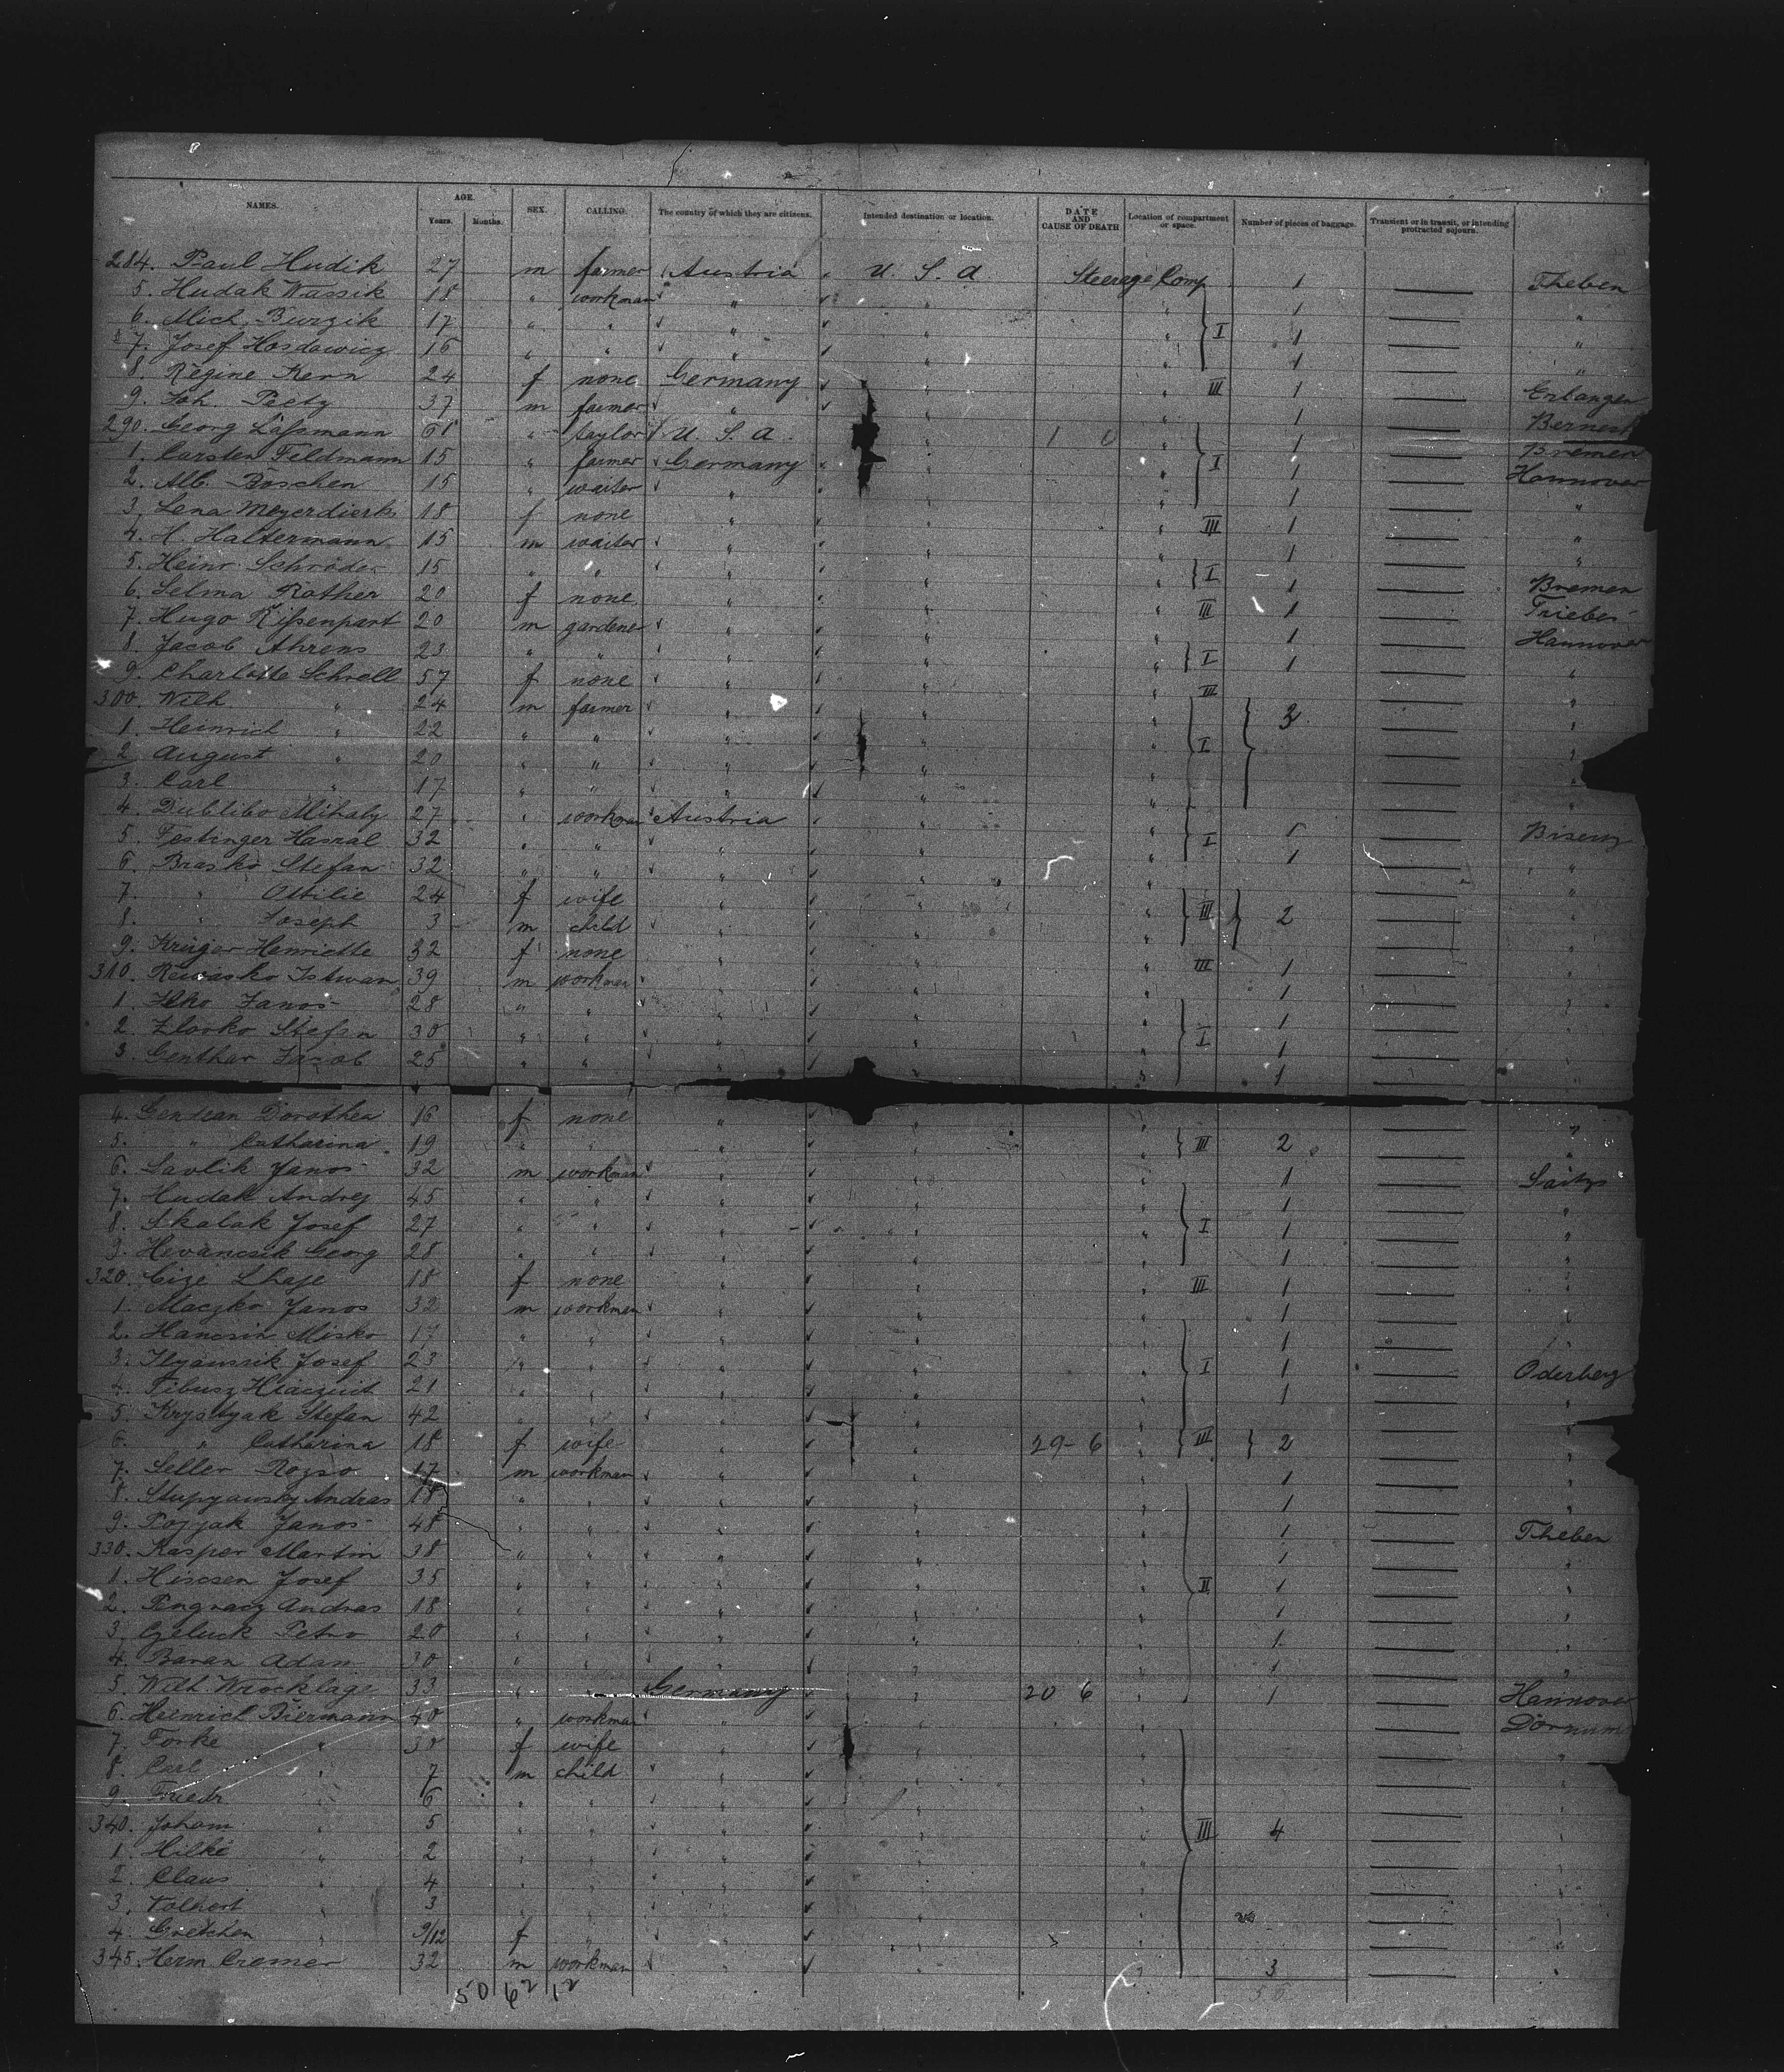 NAMES. AGE. Years. Months. SEX. CALLING. The country of which they are citizens. Intended destination or location. DATE AND CAUSE OF DEATH Location of compartment or space. Number of pieces of baggage. Transient or in transit, or intending protracted sojourn.
284. Paul Hudik 27 m farmer Austria U. S. A Steerage Comp 1 Theben
5. Hudak Wassik 18 " workman " " " 1 "
6. Mich. Burzik 17 " " " " " I 1 "
7. Josef Hosdowicz 16 " " " " " 1 "
8. Regine Kern 24 f none Germany " " III 1 Erlangen
9. Joh. Peetz 37 m farmer " " " 1
290. Georg Laßmann 61 " taylor U. S. A. " 1 Bremen
1. Carsten Feldmann 15 " farmer Germany " " I 1 Hannover
2. Alb. Böschen 15 " waiter " " " 1 "
3. Lena Meyerdierks 18 f none " " " III 1 "
4. H. Haltermann 15 m waiter " " " 1 "
5. Heinr. Schröder 15 " " " " " I 1 Bremen
6. Selma Rother 20 f none " " " III 1 Triebes
7. Hugo Rißenpart 20 m gardener " " " 1 Hannover
8. Jacob Ahrens 23 " " " " " I 1 "
9. Charlotte Schroll 57 f none " " " III "
300. Wilh. " 24 m farmer " " " 3 "
1. Heinrich " 22 " " " " " I "
2. August " 20 " " " " " "
3. Carl " 17 " " " " " "
4. Mihaly 27 " workman Austria " " 1 Biserz
5. Festinger 32 " " " " " I 1 "
6. Brasko Stefan 32 " " " " " "
7. " Ottilie 24 f wife " " " III 2 "
8. " Joseph 3 m child " " " "
9. Krüger Henriette 32 f none " " " III 1 "
310. Rewasko Istwan 39 m workman " " " 1 "
1. Ilko Janos 28 " " " " " 1 "
2. Zlooko Stefan 30 " " " " " I 1 "
3. Genthar Jacob 25 " " " " " 1 "
4. Gendean Dorothea 16 f none " " " "
5. " Catharina 19 " " " " " III 2 "
6. Savlik Janos 32 m workman " " " 1
7. Hudak Andrej 45 " " " " " 1 "
8. Skalak Josef 27 " " " " " I 1 "
9. Hevancsik Georg 28 " " " " " 1 "
320. Cize 18 f none " " " III 1 "
1. Maczko Janos 32 m workman " " " 1 "
2. Hancsin Misko 17 " " " " " 1 "
3. Josef 23 " " " " " I 1 Oderberg
4. Tibusz 21 " " " " " 1 "
5. Krystyak Stefan 42 " " " " " "
6. " Catharina 18 f wife " " 29-6 " III 2 "
7. Seller Rozso 17 m workman " " " 1 "
8. Stupyansky Andras 18 " " " " " 1 "
9. Pozyak Janos 48 " " " " " 1 Theben
330. Kasper Martin 38 " " " " " 1 "
1. Hiscsen Josef 35 " " " " " II 1 "
2. Pengracz Andras 18 " " " " " 1 "
3. Czeluck Petro 20 " " " " " 1 "
4. Baran Adam 30 " " " " " 1 "
5. Wilh. Wrocklage 33 " " Germany " 20 6 " 1 Hannover
6. Heinrich Biermann 40 " workman " " " Dornum
7. Forke " 30 f wife " " " "
8. Carl " 7 m child " " " "
9. Friedr " 6 " " " " " "
340. Johann " 5 " " " " " III 4 "
1. Hilke " 2 " " " " " "
2. Claus " 4 " " " " " "
3. " 3 " " " " " "
4. Gretchen " 9/12 f " " " " "
345. Herm Cremer 32 m workman " " " 3 "
50 62 12 56